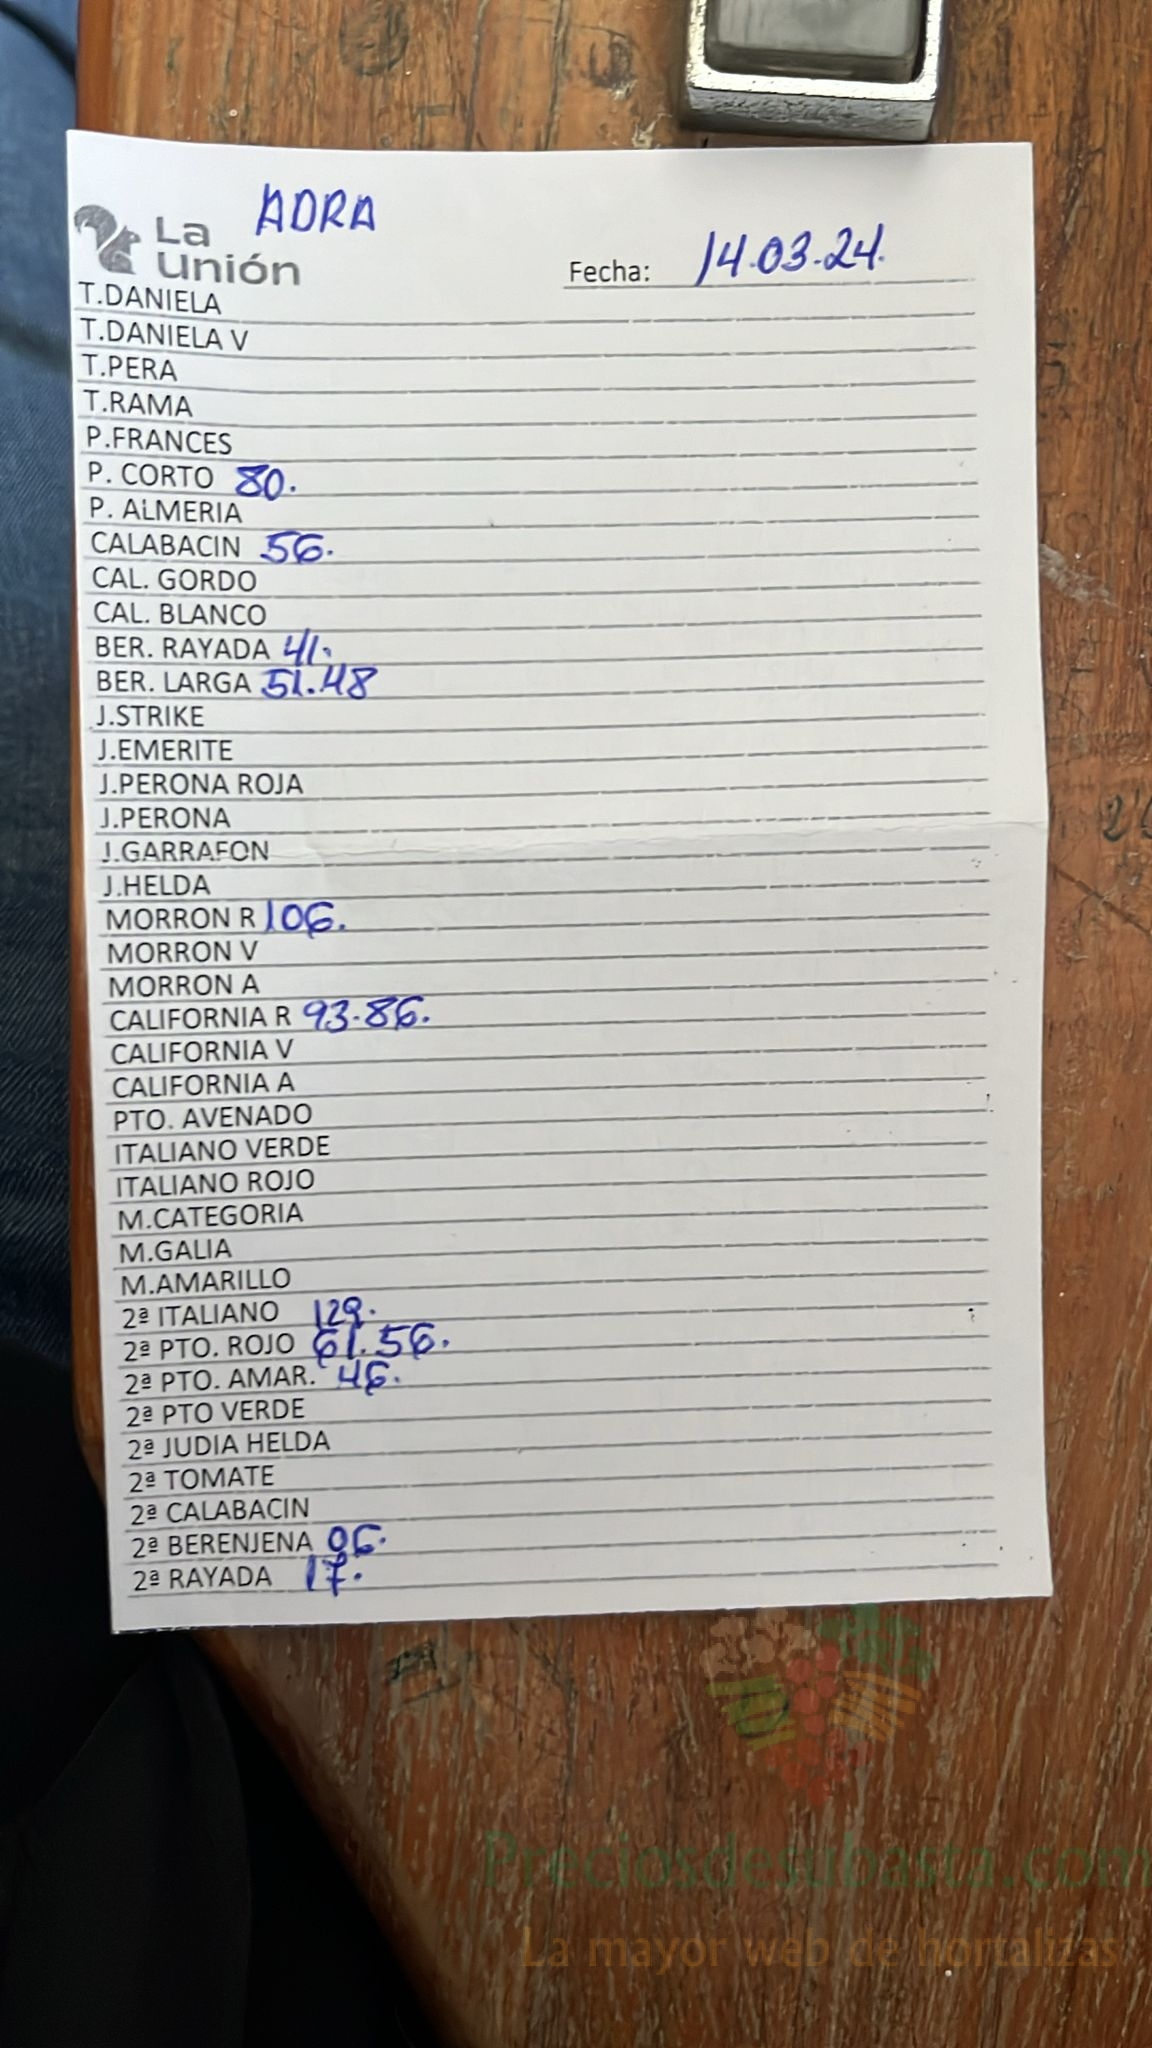 ADRA
La
Unión
Fecha: 14.03.24.
T.DANIELA
T.DANIELA V
T.PERA
T.RAMA
P.FRANCES
P. CORTO 80.
P. ALMERIA
CALABACIN 56.
CAL. GORDO
CAL. BLANCO
BER. RAYADA 41.
BER. LARGA 51.48
J.STRIKE
J.EMERITE
J.PERONA ROJA
J.PERONA
J.GARRAFON
J.HELDA
MORRON R 106.
MORRON V
MORRON A
CALIFORNIA R 93.86.
CALIFORNIA V
CALIFORNIA A
PTO. AVENADO
ITALIANO VERDE
ITALIANO ROJO
M.CATEGORIA
M.GALIA
M.AMARILLO
2ª ITALIANO 129.
2ª PTO. ROJO 61.56.
2ª PTO. AMAR. 46.
2ª PTO VERDE
2ª JUDIA HELDA
2ª TOMATE
2ª CALABACIN
2ª BERENJENA 06.
2ª RAYADA 17.
Preciosdesubasta.com
La mayor web de hortalizas